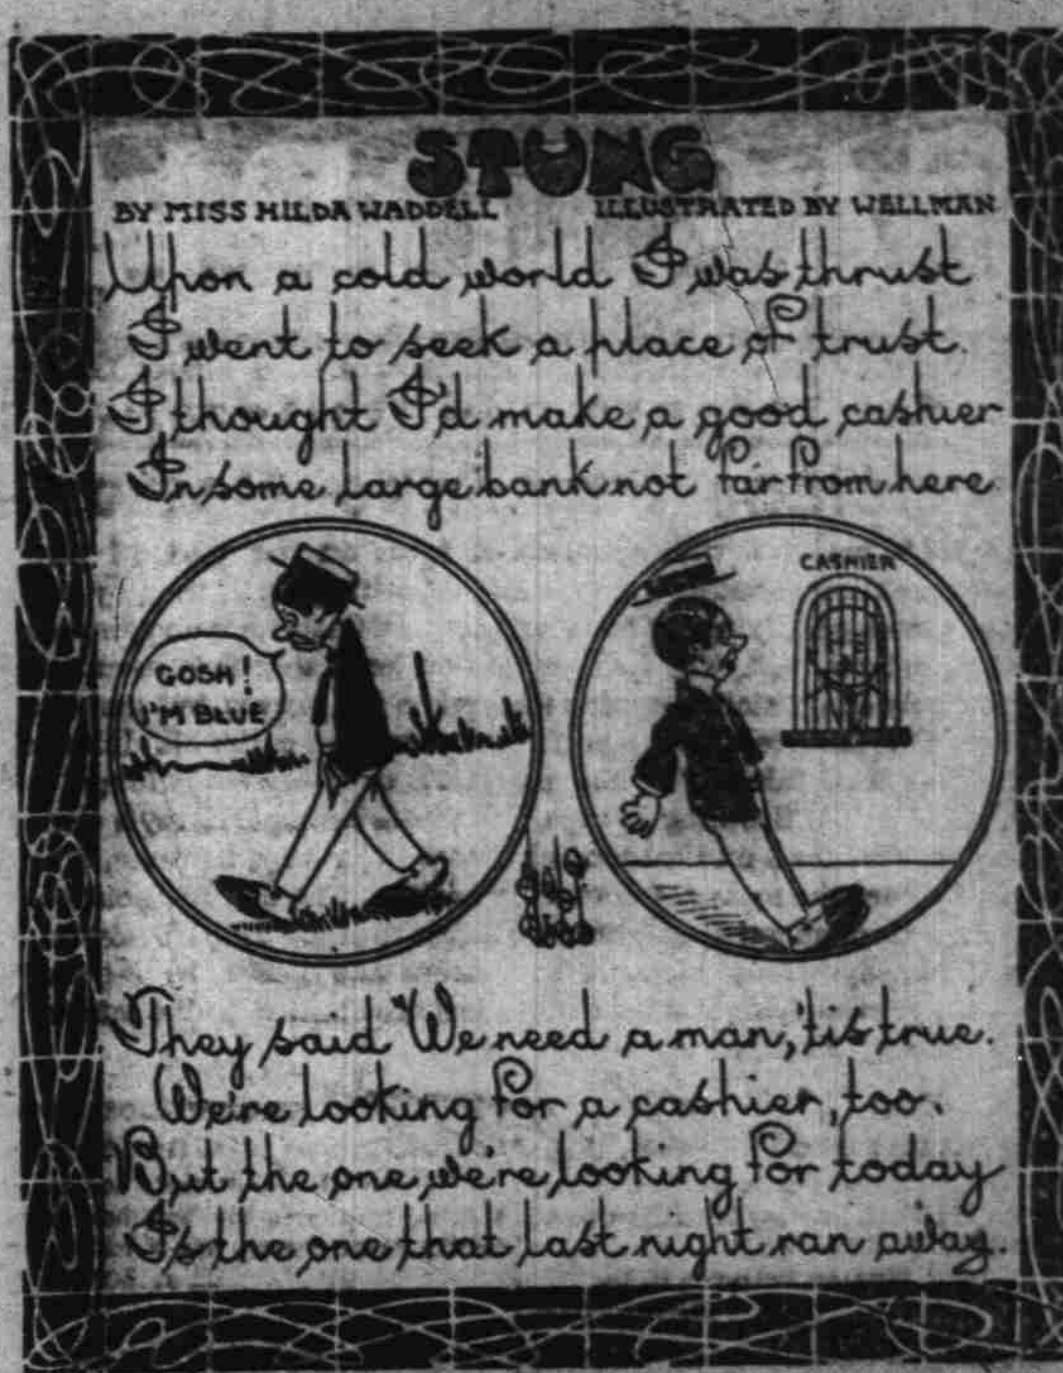 STUNG
BY MISS HILDA WADDELL ILLUSTRATED BY WELLMAN
Upon a cold world I was thrust
I went to seek a place of trust.
I thought I'd make a good cashier
In some large bank not far from here.
GOSH!
I'M BLUE
CASHIER
They said "We need a man, 'tis true.
We're looking for a cashier, too.
But the one we're looking for today
Is the one that last night ran away.